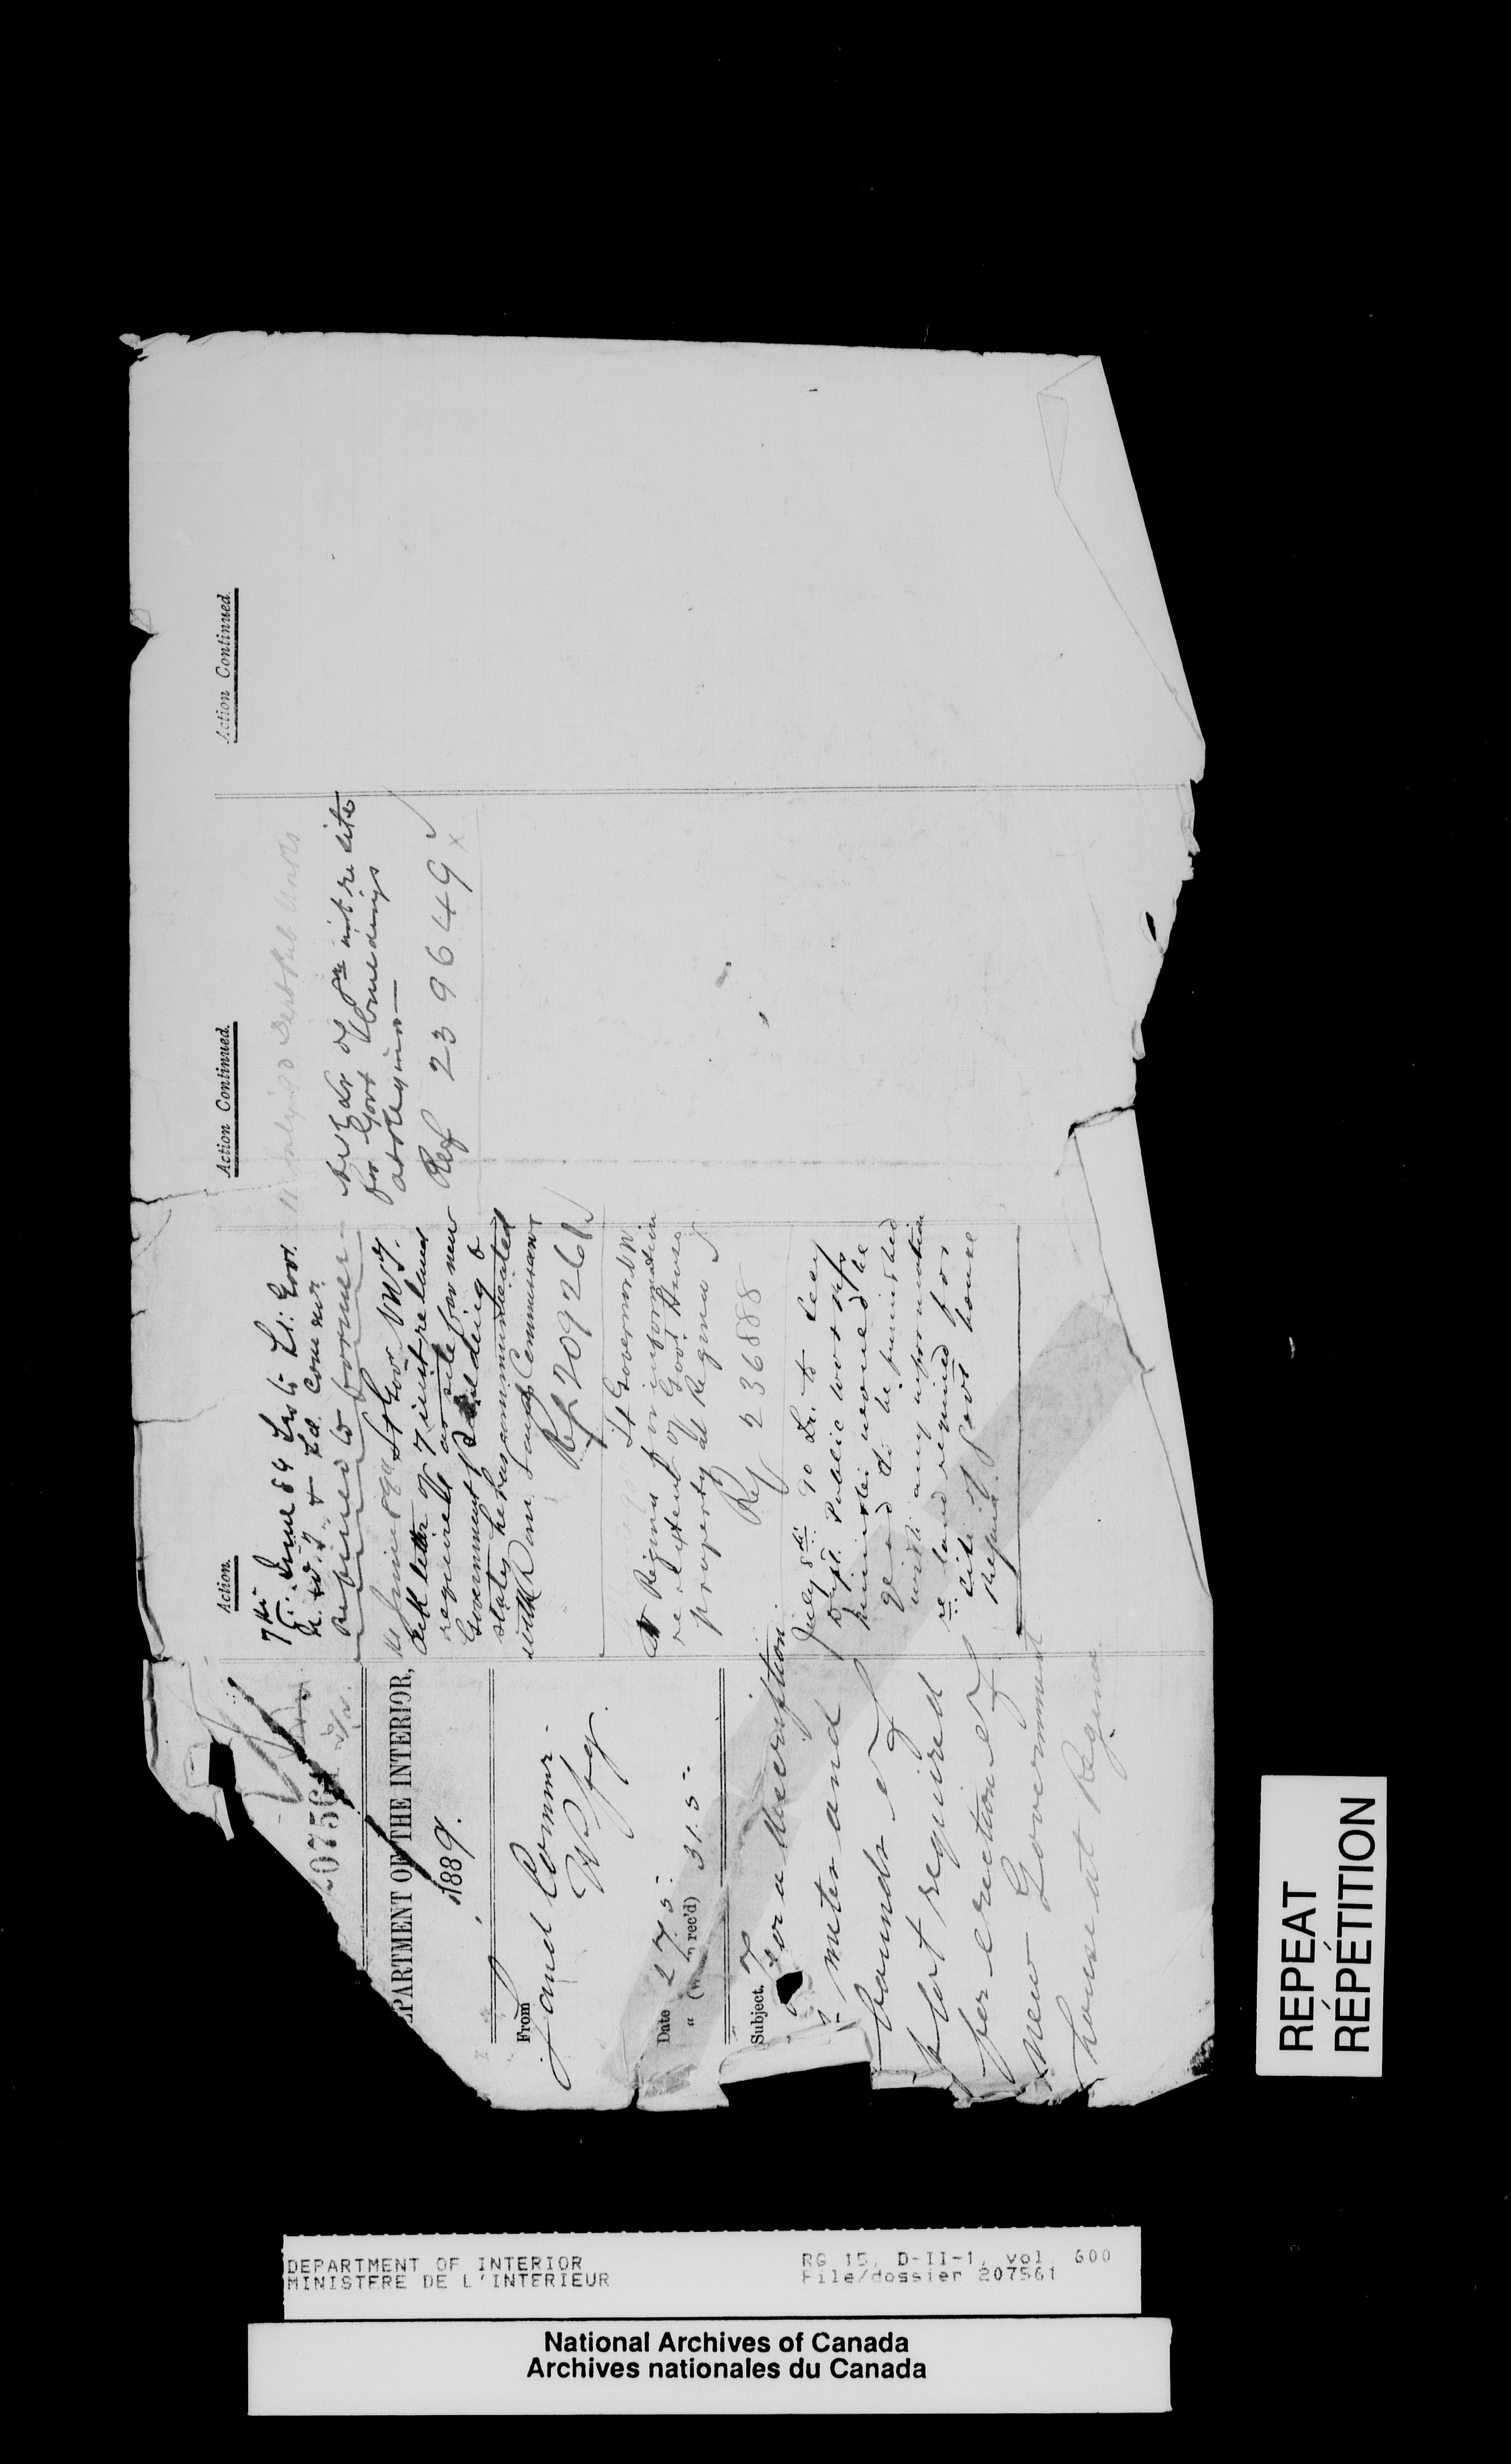 0756
DEPARTMENT OF THE INTERIOR,
1889.
From
Land Commr.
Wpg.
Date 27.5.
" (when rec'd) 31.5.
Subject.
For a description
meter and
bounds of
plot required
for erection of
new Government
house at Regina
Action.
7th June 89 Lrs to Lt: Govr.
N.W.T. & Ld. Commr.
June 89 Lt Gov NWT.
Ack letter of 7 inst re land
required as site for new
Government Building &
states he has communicated
with Dom Lands Commissioner
Ref 209261
Lt Governor N.W.
Regina for information
re extent of Govt House
property at Regina
Ref 236888
July 8th 90 Lr. to Secy
Dept. Public Works
minister
to be furnished
with any information
re land required for
site of Govt house
Regina.
Action Continued.
11 July 90 Dept Pub Works
Lr of inst re site
for Govt buildings
at Regina—
Ref 239649 x
Action Continued.
REPEAT
RÉPÉTITION
DEPARTMENT OF INTERIOR
MINISTERE DE L'INTERIEUR
RG 15, D-II-1, vol. 600
File/dossier 207561
National Archives of Canada
Archives nationales du Canada